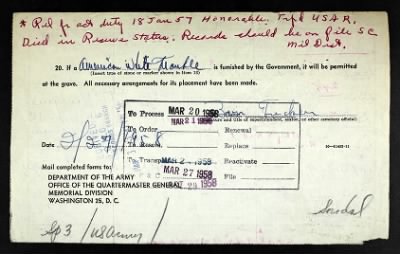 * Rel fr act duty 18 Jan 57 Honorable. Trfd USAR.
Died in Reserve Status. Records should be on file SC
Mil Dist.
20. If a American White Marble is furnished by the Government, it will be permitted
(Insert type of stone or marker shown in Item 13)
at the grave. All necessary arrangements for its placement have been made.
To Process MAR 20 1958
MAR 21 1958
To Order
Renewal
Date 2/27/1958
To Resub.
Replace
Mail completed forms to:
To Transp.
Reactivate
DEPARTMENT OF THE ARMY
MAR 27 1958
File
OFFICE OF THE QUARTERMASTER GENERAL
MEMORIAL DIVISION
WASHINGTON 25, D. C.
Sp3 / US Army /